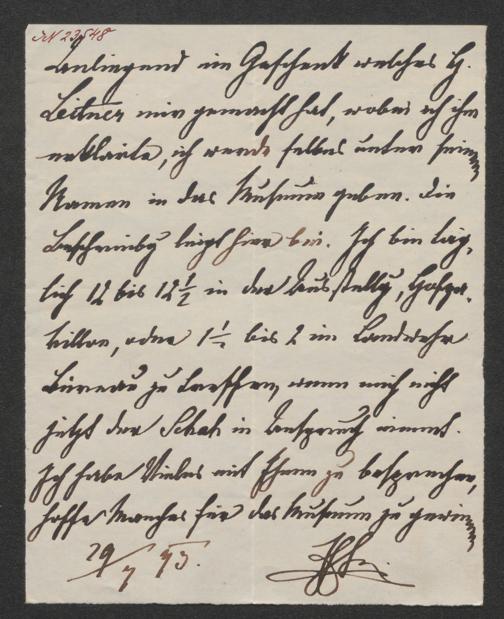 JN 23548
Anliegend ein Geschenk welches H.
Leitner mir gemacht hat, wobei ich ihm
erklärte, ich werde selbes unter seinem
Namen in das Museum geben. Die
Beschreibg liegt hier bei. Ich bin täg-
lich 12 bis 12 1/2 in der Ausstellg, Hofpa-
villon, oder 1 1/2 bis 2 im Landwehr
Büreau zu treffen, wenn mich nicht
jetzt der Schah in Anspruch nimmt.
Ich habe Vieles mit Ihnen zu besprechen,
hoffe Manches für das Museum zu gewinnen
29/7 73.